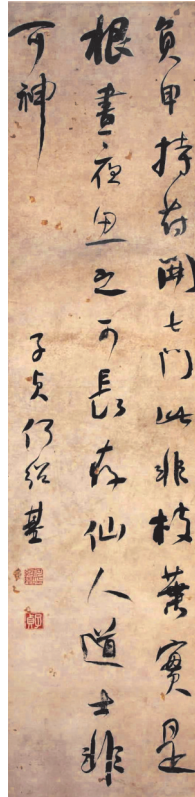 負甲持符開七門此非枝葉實是
根晝夜思之可長存仙人道士非
可神
子貞何紹基